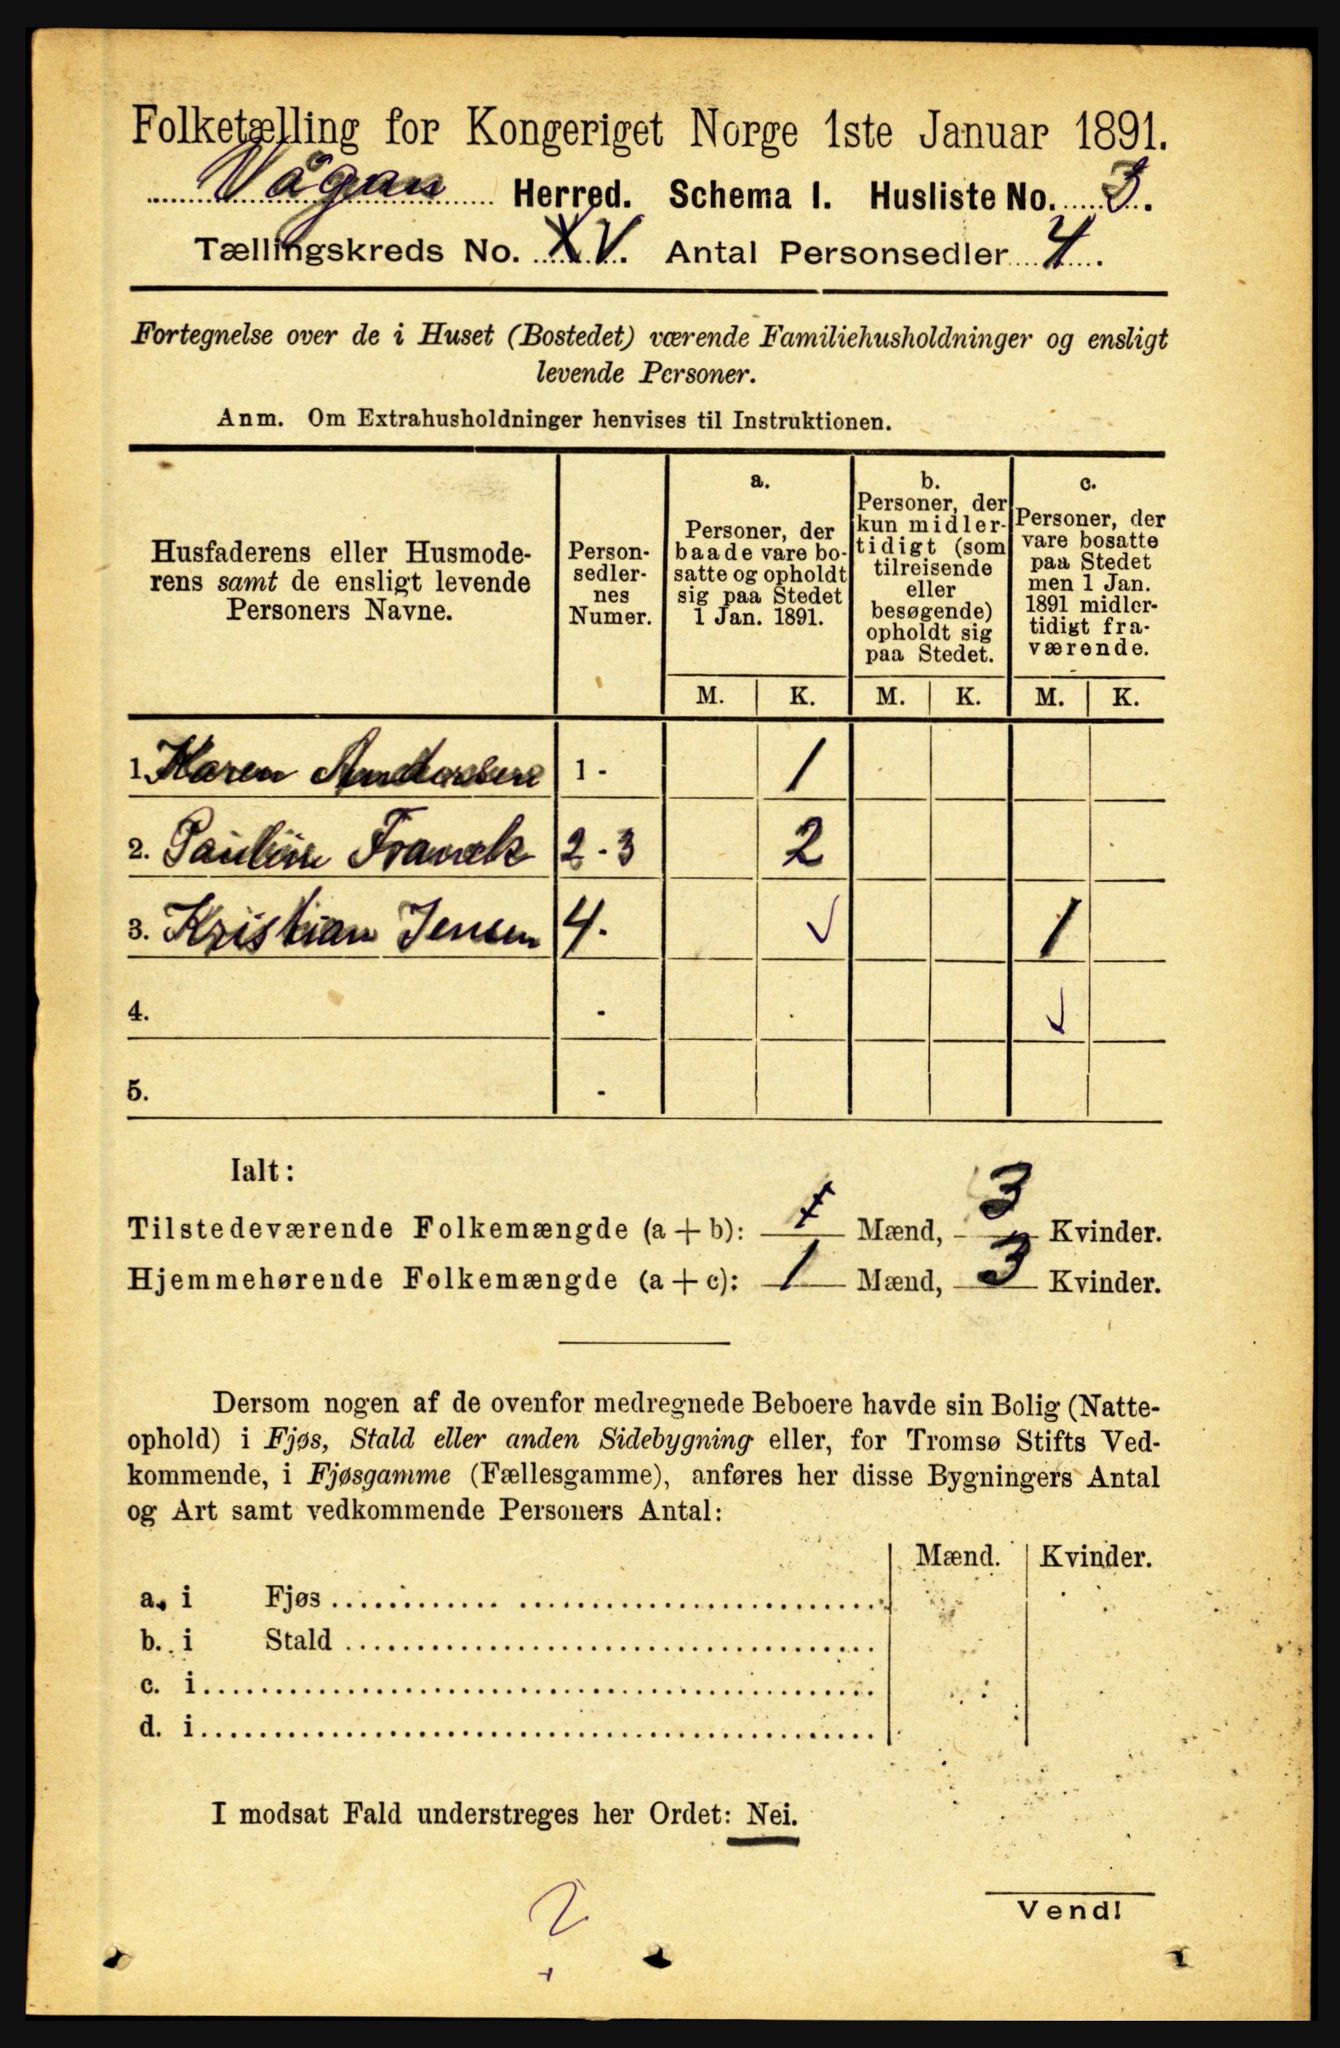 Folketælling for Kongeriget Norge 1ste Januar 1891.
Vågan Herred. Schema I. Husliste No. 3.
Tællingskreds No. XV. Antal Personsedler 4.
Fortegnelse over de i Huset (Bostedet) værende Familiehusholdninger og ensligt
levende Personer.
Anm. Om Extrahusholdninger henvises til Instruktionen.
Husfaderens eller Husmode-
rens samt de ensligt levende
Personers Navne.
Person-
sedler-
nes
Numer.
a.
Personer, der
baade vare bo-
satte og opholdt
sig paa Stedet
1 Jan. 1891.
b.
Personer, der
kun midler-
tidigt (som
tilreisende
eller
besøgende)
opholdt sig
paa Stedet.
c.
Personer, der
vare bosatte
paa Stedet
men 1 Jan.
1891 midler-
tidigt fra-
værende.
M. K. M. K. M. K.
1. Karen Andersen 1 - 1
2. Pauline Franck 2 - 3 2
3. Kristian Jensen 4 - 1
4. -
5. -
Ialt:
Tilstedeværende Folkemængde (a + b): Mænd, 3 Kvinder.
Hjemmehørende Folkemængde (a + c): 1 Mænd, 3 Kvinder.
Dersom nogen af de ovenfor medregnede Beboere havde sin Bolig (Natte-
ophold) i Fjøs, Stald eller anden Sidebygning eller, for Tromsø Stifts Ved-
kommende, i Fjøsgamme (Fællesgamme), anføres her disse Bygningers Antal
og Art samt vedkommende Personers Antal:
Mænd. Kvinder.
a. i Fjøs
b. i Stald
c. i
d. i
I modsat Fald understreges her Ordet: Nei.
2
Vend!